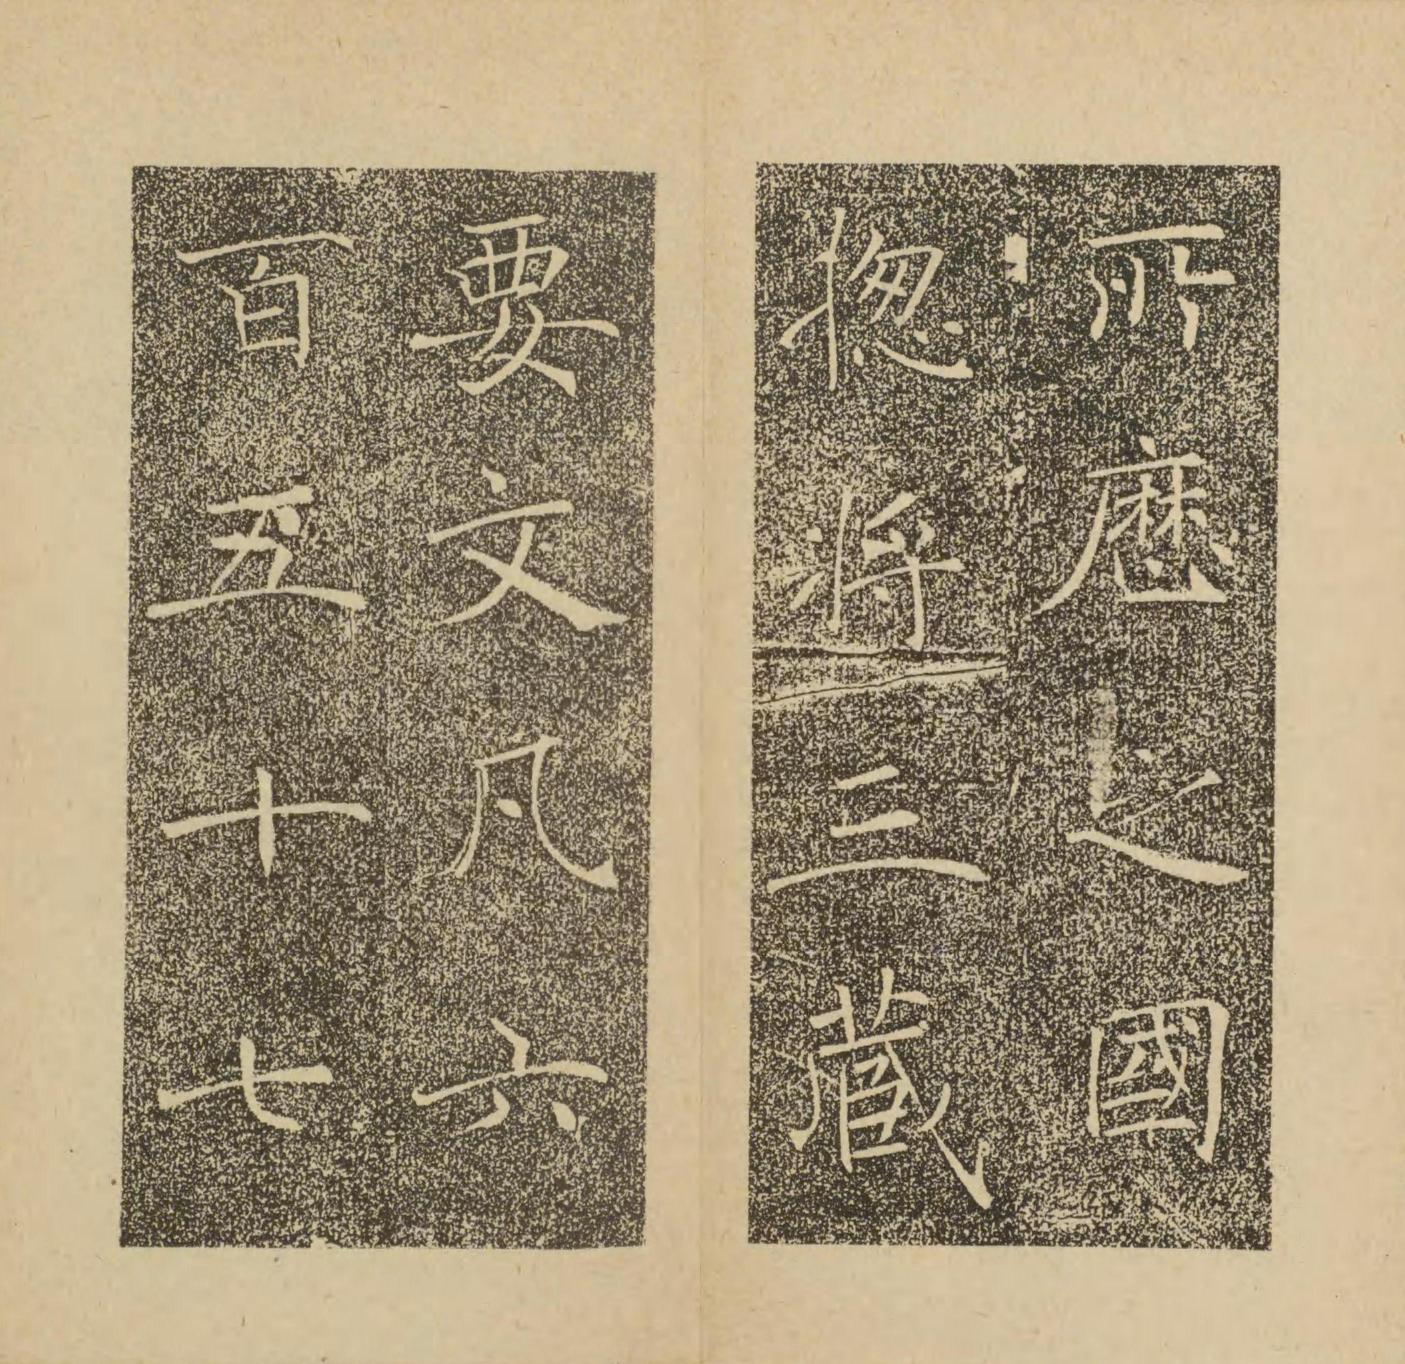 所歷之國
揔將三藏
要文凡六
百五十七